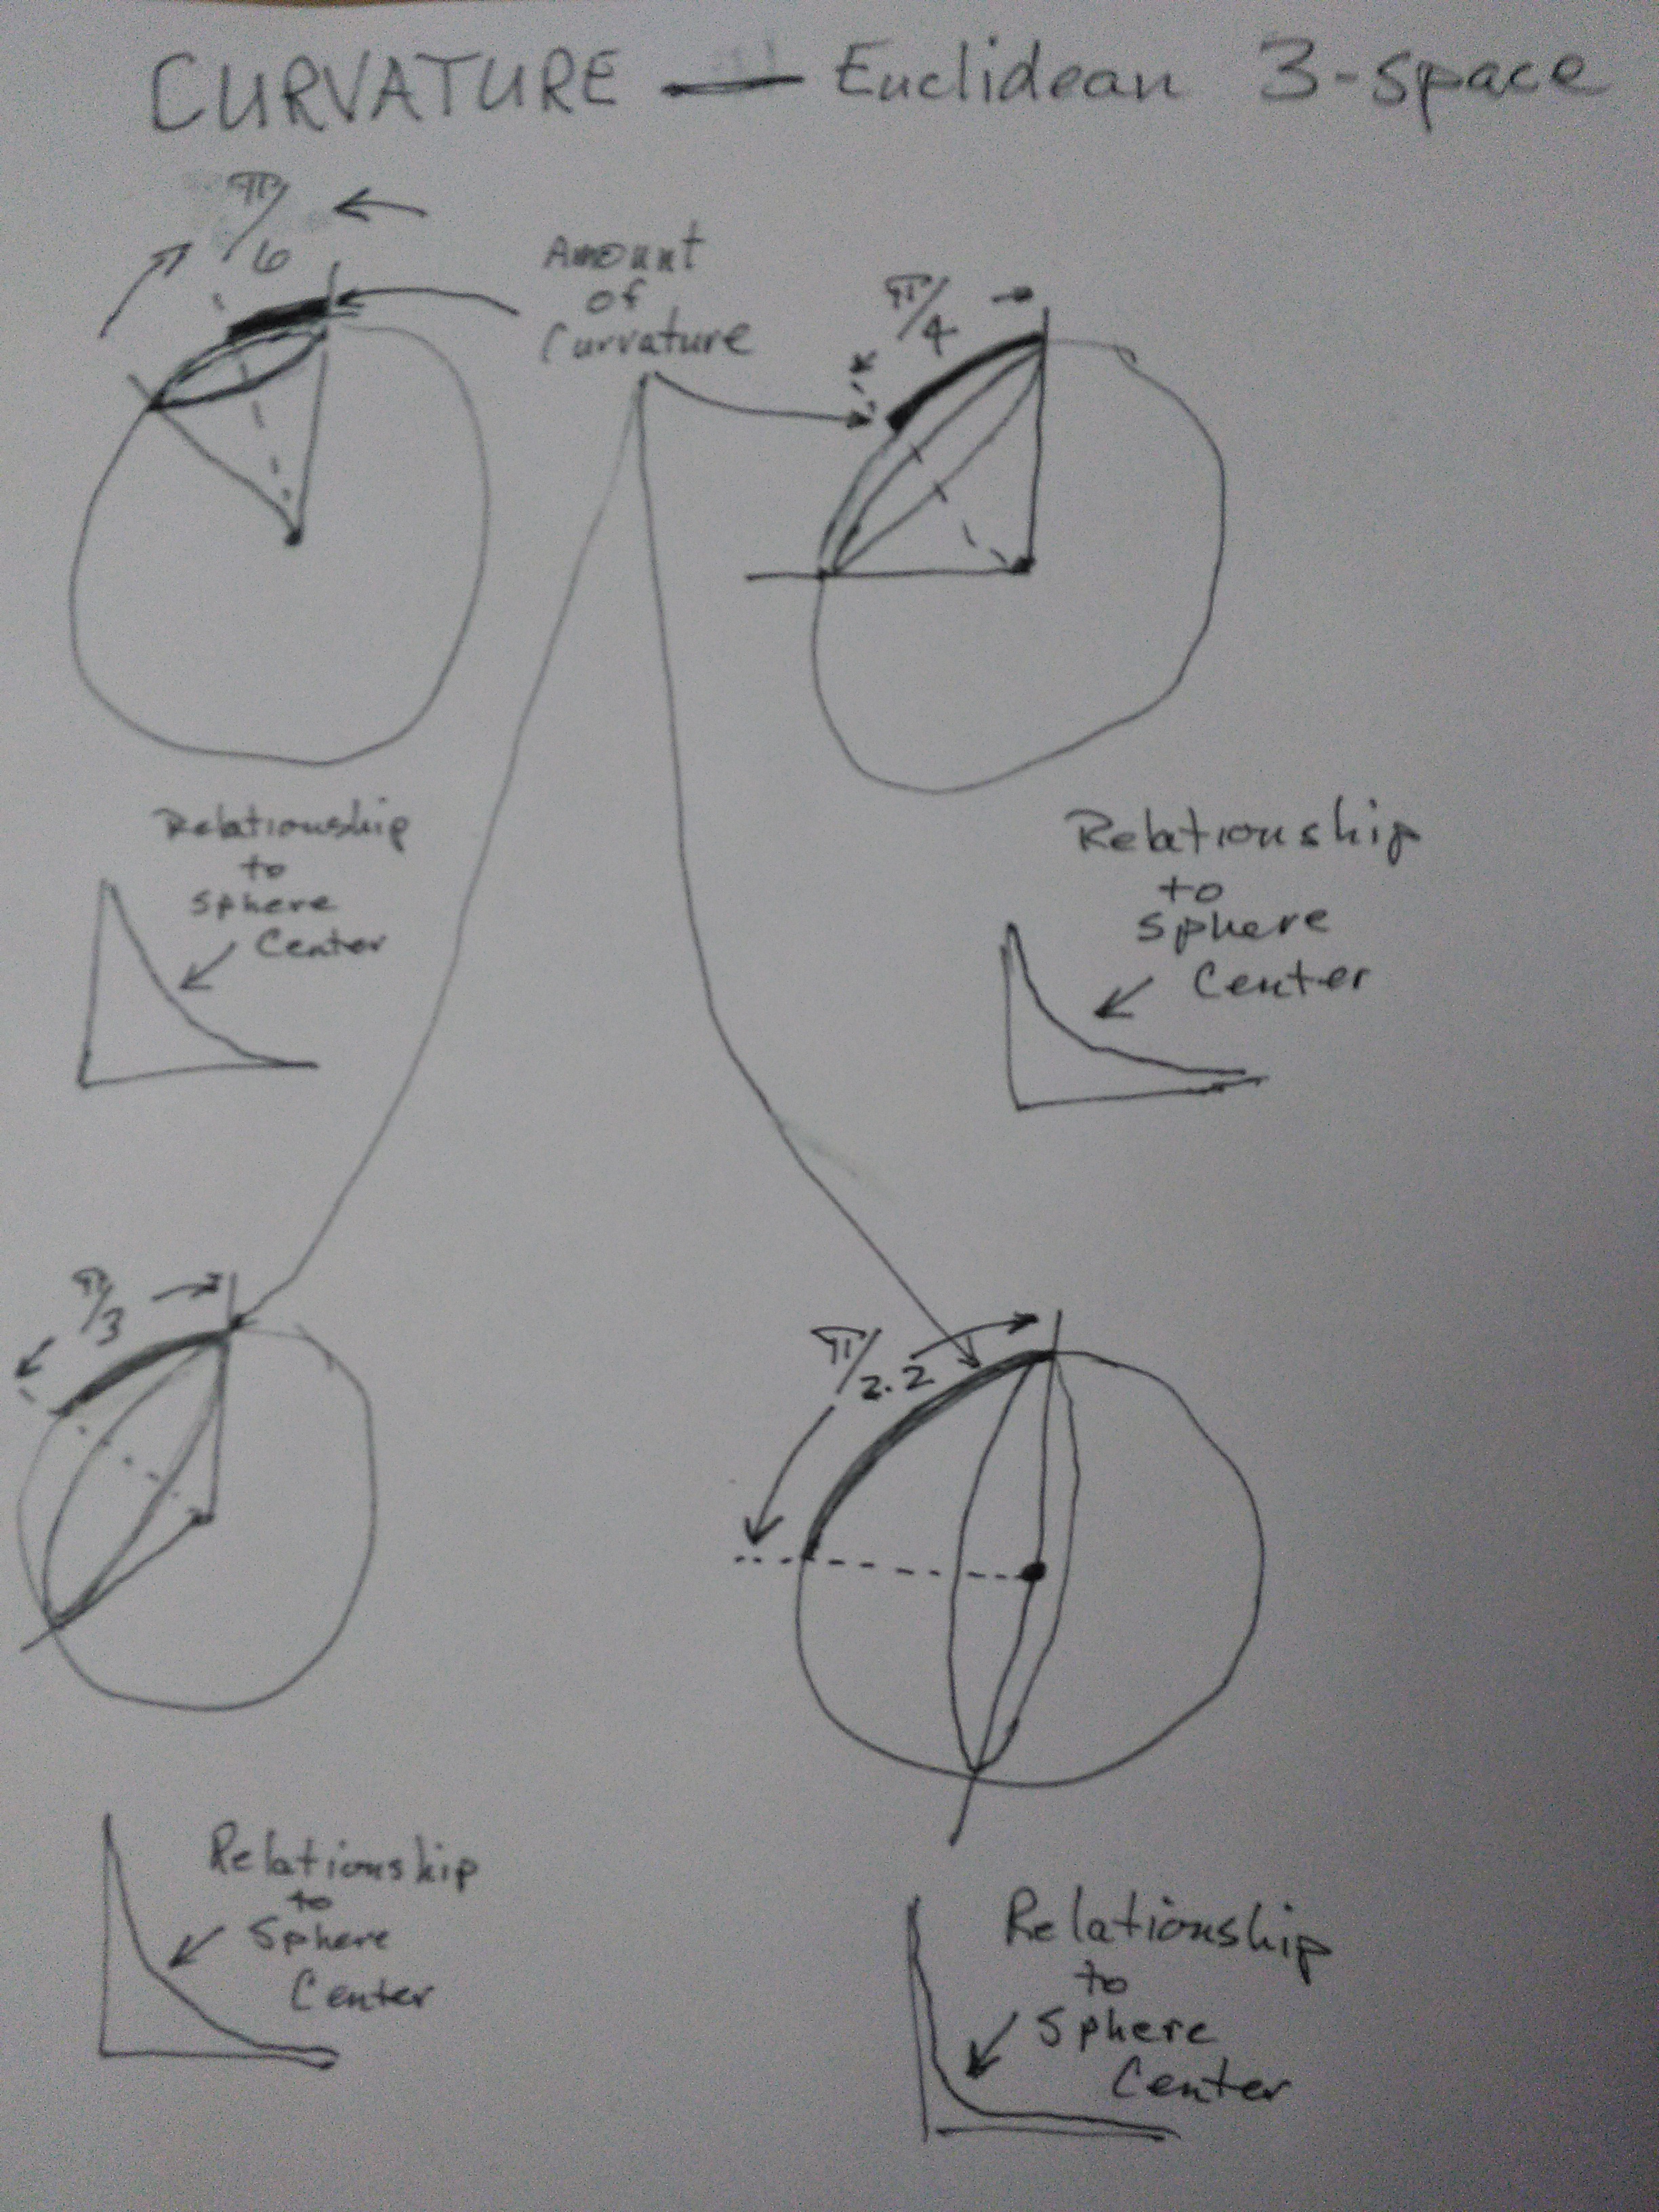 CURVATURE — Euclidean 3-space
π/6
Amount
of
Curvature
π/4
Relationship
to
Sphere
Center
Relationship
to
Sphere
Center
π/3
π/2.2
Relationship
to
Sphere
Center
Relationship
to
Sphere
Center